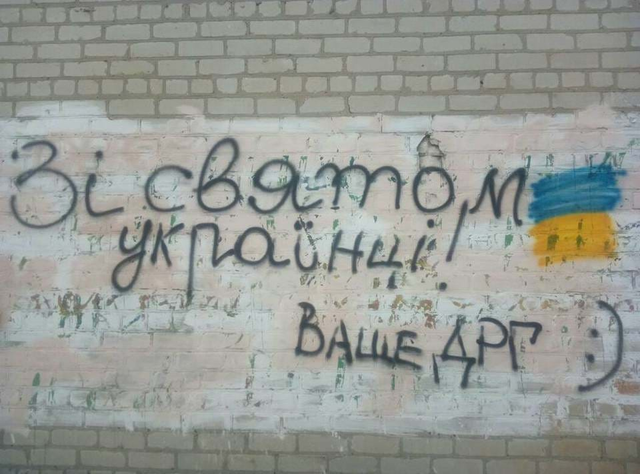 Зі святом
українці!
ВАШЕ ДРГ :)